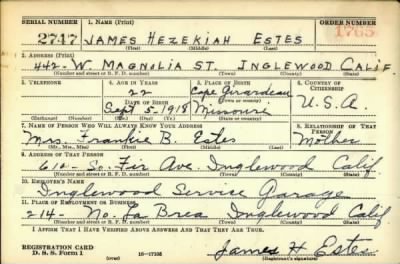 SERIAL NUMBER 1. NAME (Print) ORDER NUMBER
2747 JAMES HEZEKIAH ESTES 1765
(First) (Middle) (Last)
2. ADDRESS (Print)
442- W. MAGNOLIA ST. INGLEWOOD CALIF
(Number and street or R. F. D. number) (Town) (County) (State)
3. TELEPHONE 4. AGE IN YEARS 5. PLACE OF BIRTH 6. COUNTRY OF CITIZENSHIP
22 Cape Girardeau
DATE OF BIRTH (Town or county)
Sept. 5 1918 Missouri U.S.A.
(Exchange) (Number) (Mo.) (Day) (Yr.) (State or country)
7. NAME OF PERSON WHO WILL ALWAYS KNOW YOUR ADDRESS 8. RELATIONSHIP OF THAT PERSON
Mrs. Frankie B. Estes Mother
(Mr., Mrs., Miss) (First) (Middle) (Last)
9. ADDRESS OF THAT PERSON
612- So. Fir Ave. Inglewood Calif.
(Number and street or R. F. D. number) (Town) (County) (State)
10. EMPLOYER'S NAME
Inglewood Service Garage
11. PLACE OF EMPLOYMENT OR BUSINESS
214- No. La Brea Inglewood Calif
(Number and street or R. F. D. number) (Town) (County) (State)
I AFFIRM THAT I HAVE VERIFIED ABOVE ANSWERS AND THAT THEY ARE TRUE.
REGISTRATION CARD
D. S. S. Form 1 (over) James H Estes
(Registrant's signature)